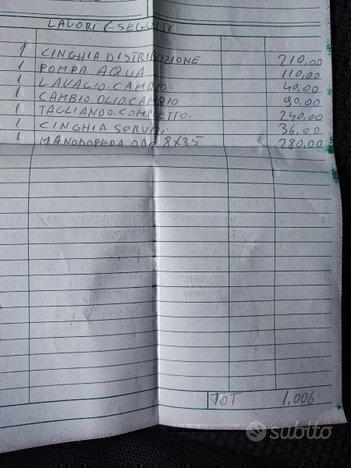 LAVORI ESEGUITI
1 CINGHIA DISTRIBUZIONE 210,00
1 POMPA AQUA 110,00
1 LAVAGIO CAMBIO. 40,00
1 CAMBIO OLIO CAMBIO 90,00
1 TAGLIANDO COMPLETTO. 240,00
1 CINGHIA SERVIZI 36,00
1 MANODOPERA ORE 8X35 280,00
TOT 1,006
subito